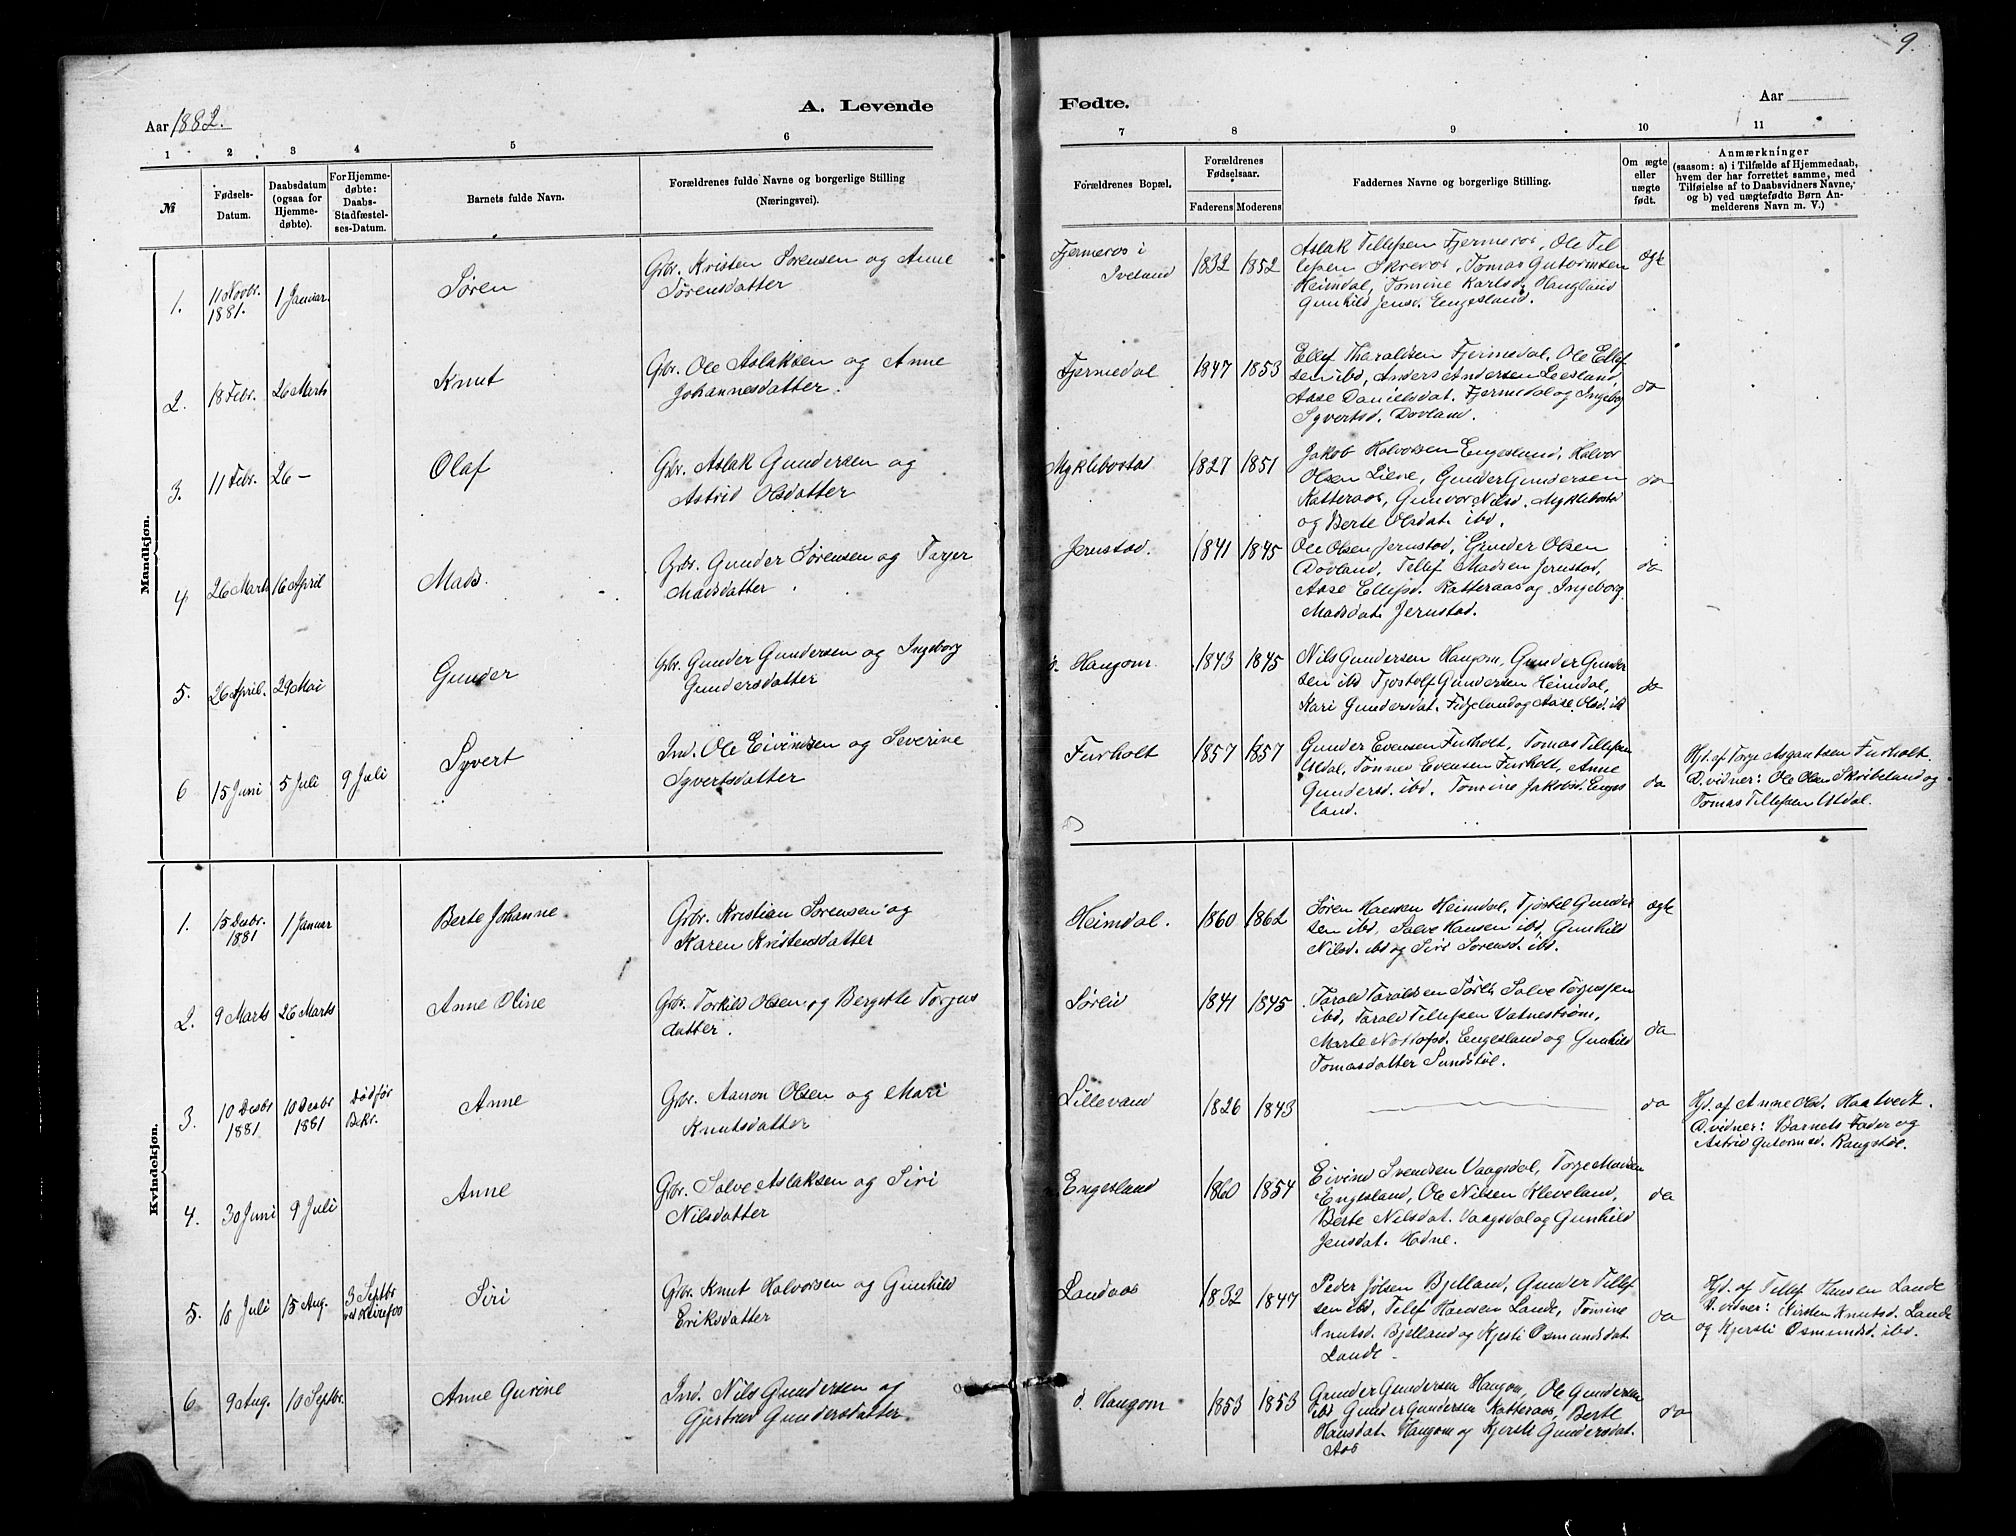 9.
A. Levende Fødte.
Aar 1882. Aar
1 2 3 4 5 6 7 8 9 10 11
№ Fødsels-Datum. Daabsdatum (ogsaa for Hjemmedøbte). For Hjemmedøbte: Daabs-Stadfæstelses-Datum. Barnets fulde Navn. Forældrenes fulde Navne og borgerlige Stilling (Næringsvei). Forældrenes Bopæl. Forældrenes Fødselsaar. Faderens Moderens Faddernes Navne og borgerlige Stilling. Om ægte eller uægte født. Anmærkninger (saasom: a) i Tilfælde af Hjemmedaab, hvem der har forrettet samme, med Tilføielse af to Daabsvidners Navne, og b) ved uægtefødte Børn Anmelderens Navn m. V.)
Mandkjøn.
1. 11 Novbr. 1881. 1 Januar. Søren
Gbr. Kristen Sørensen og Anne
Sørensdatter
Fjermeros i
Iveland
1832 1852
Aslak Tellefsen Fjermeros, Ole Tel
lefsen Skreros, Tomas Gutormsen
Heimdal, Tomine Karlsd. Haugland
Gunhild Jensd. Engesland.
ægte
2. 18 Febr. 26 Marts Knut
Gbr. Ole Aslaksen og Anne
Johannesdatter.
Fjermedal 1847 1853
Ellef Tharaldsen Fjermedal, Ole Ellef
sen ibd, Anders Andersen Leesland,
Aase Danielsdat. Fjermedal og Ingeborg
Syvertsd. Dovland.
do
3. 11 Febr. 26 — Olaf
Gbr. Aslak Gundersen og
Astrid Olsdatter
Myklebostad 1827 1851
Jakob Halvorsen Engesland, Halvor
Olsen Lieve, Gunder Gundersen
Katteraas, Gunvor Nilsd. Myklebostad
og Berte Olsdat. ibd.
do
4. 26 Marts 16 April Mads.
Gbr. Gunder Sørensen og Torjer
Madsdatter
Jerustad. 1841 1845
Ole Olsen Jerustad, Gunder Olsen
Dovland, Tellef Madsen Jerustad,
Aase Ellefsd. Katteraas og Ingeborg
Madsdat. Jerustad.
do
5. 26 April. 29 Mai Gunder
Gbr. Gunder Gundersen og Ingeborg
Gundersdatter
d. Haugom. 1843 1845
Nils Gundersen Haugom, Gunder Gunder
sen ibd Tjostolf Gundersen Heimdal,
Kari Gundersdat. Fidjeland og Aase Olsd. ib
do
6 15 Juni 5 Juli 9 Juli Syvert
Ind. Ole Eivindsen og Severine
Syvertsdatter
Furholt 1857 1857
Gunder Evensen Furholt, Tomas Tellefsen
Utdal, Tønnes Evensen Furholt, Anne
Gundersd. ibd. Tomine Jakobsd. Enges
land.
do
Hjd. af Torje Asgautsen Furholt.
D. vidner: Ole Olsen Skribeland og
Tomas Tellefsen Utdal.
Kvindekjøn.
1. 15 Desbr. 1881 1 Januar Berte Johanne
Gbr. Kristian Sørensen og
Karen Kristensdatter
Heimdal. 1860 1862
Søren Hansen Heimdal, Tjøstel Gunder
sen ibd, Salve Hansen ibd, Gunhild
Nilsd. ibd og Siri Sørensd. ibd.
ægte
2. 9 Marts 26 Marts Anne Oline
Gbr. Torkild Olsen og Bergette Torjus
datter.
Sørlid 1841 1845
Tarald Taraldsen Sørli, Salve Torjussen
ibd, Tarald Tellefsen Vatnestrøm,
Marte Nottofsd. Engesland og Gunhild
Tomasdatter Sundstøl.
do
3. 10 Desbr 1881 10 Desbr 1881 Død før Bekr. Anne
Gbr. Aanon Olsen og Mari
Knutsdatter
Lillevand 1826 1843
do
Hjd. af Anne Olsd. Haatvedt.
D. vidner: Barnets Fader og
Astrid Gutormsd. Rangstøl.
4. 30 Juni 9 Juli Anne
Gbr. Salve Aslaksen og Siri
Nilsdatter
Engesland 1860 1854
Eivind Svendsen Vaagsdal, Torje Madsen
Engesland, Ole Nilsen Kleveland,
Berte Nilsdat. Vaagsdal og Gunhild
Jensdat. Hodne.
da
5. 18 Juli 15 Aug. 3 Septbr Siri
Gbr. Knut Halvorsen og Gunhild
Eriksdatter
Landaas 1832 1847
Peder Jølsen Bjelland, Gunder Tellef
sen ibd, Tellef Hansen Lande, Tomine
Knutsd. Bjelland og Kjesti Osmundsdat.
Lande.
da
Hjd. af Tellef Hansen Lande
D. vidner: Kirsten Knutsd. Lande
og Kjersti Osmundsd. ibd.
6 9 Aug. 10 Septbr. Anne Gurine
Ind. Nils Gundersen og
Gjertrud Gundersdatter
d. Haugom 1853 1853
Gunder Gundersen Haugom, Ole Gundersen
ibd Gunder Gundersen Katteraas, Berte
Hansdat. Haugom og Kjersti Gundersdat.
Aas
do